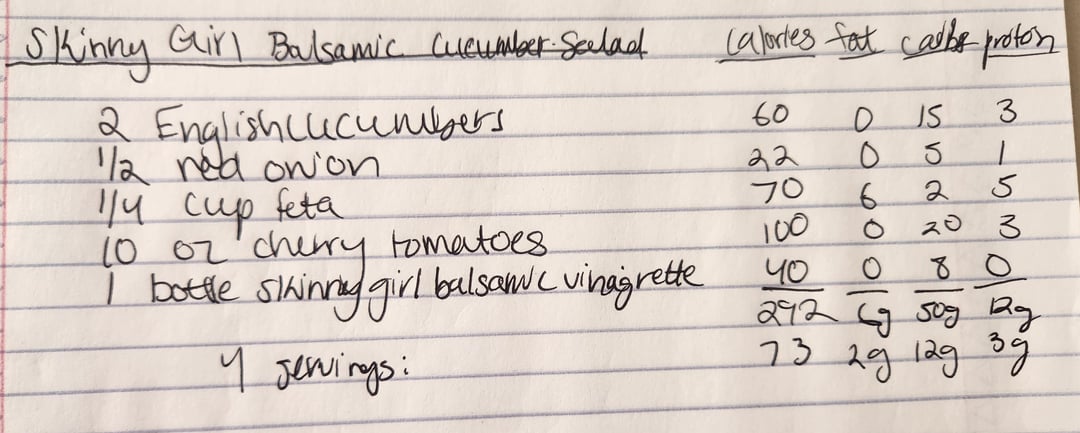 Skinny Girl Balsamic Cucumber Salad calories fat carbs protein
2 English cucumbers 60 0 15 3
1/2 red onion 22 0 5 1
1/4 cup feta 70 6 2 5
10 oz cherry tomatoes 100 0 20 3
1 bottle skinny girl balsamic vinagrette 40 0 8 0
292 6g 50g 12g
4 servings: 73 2g 12g 3g